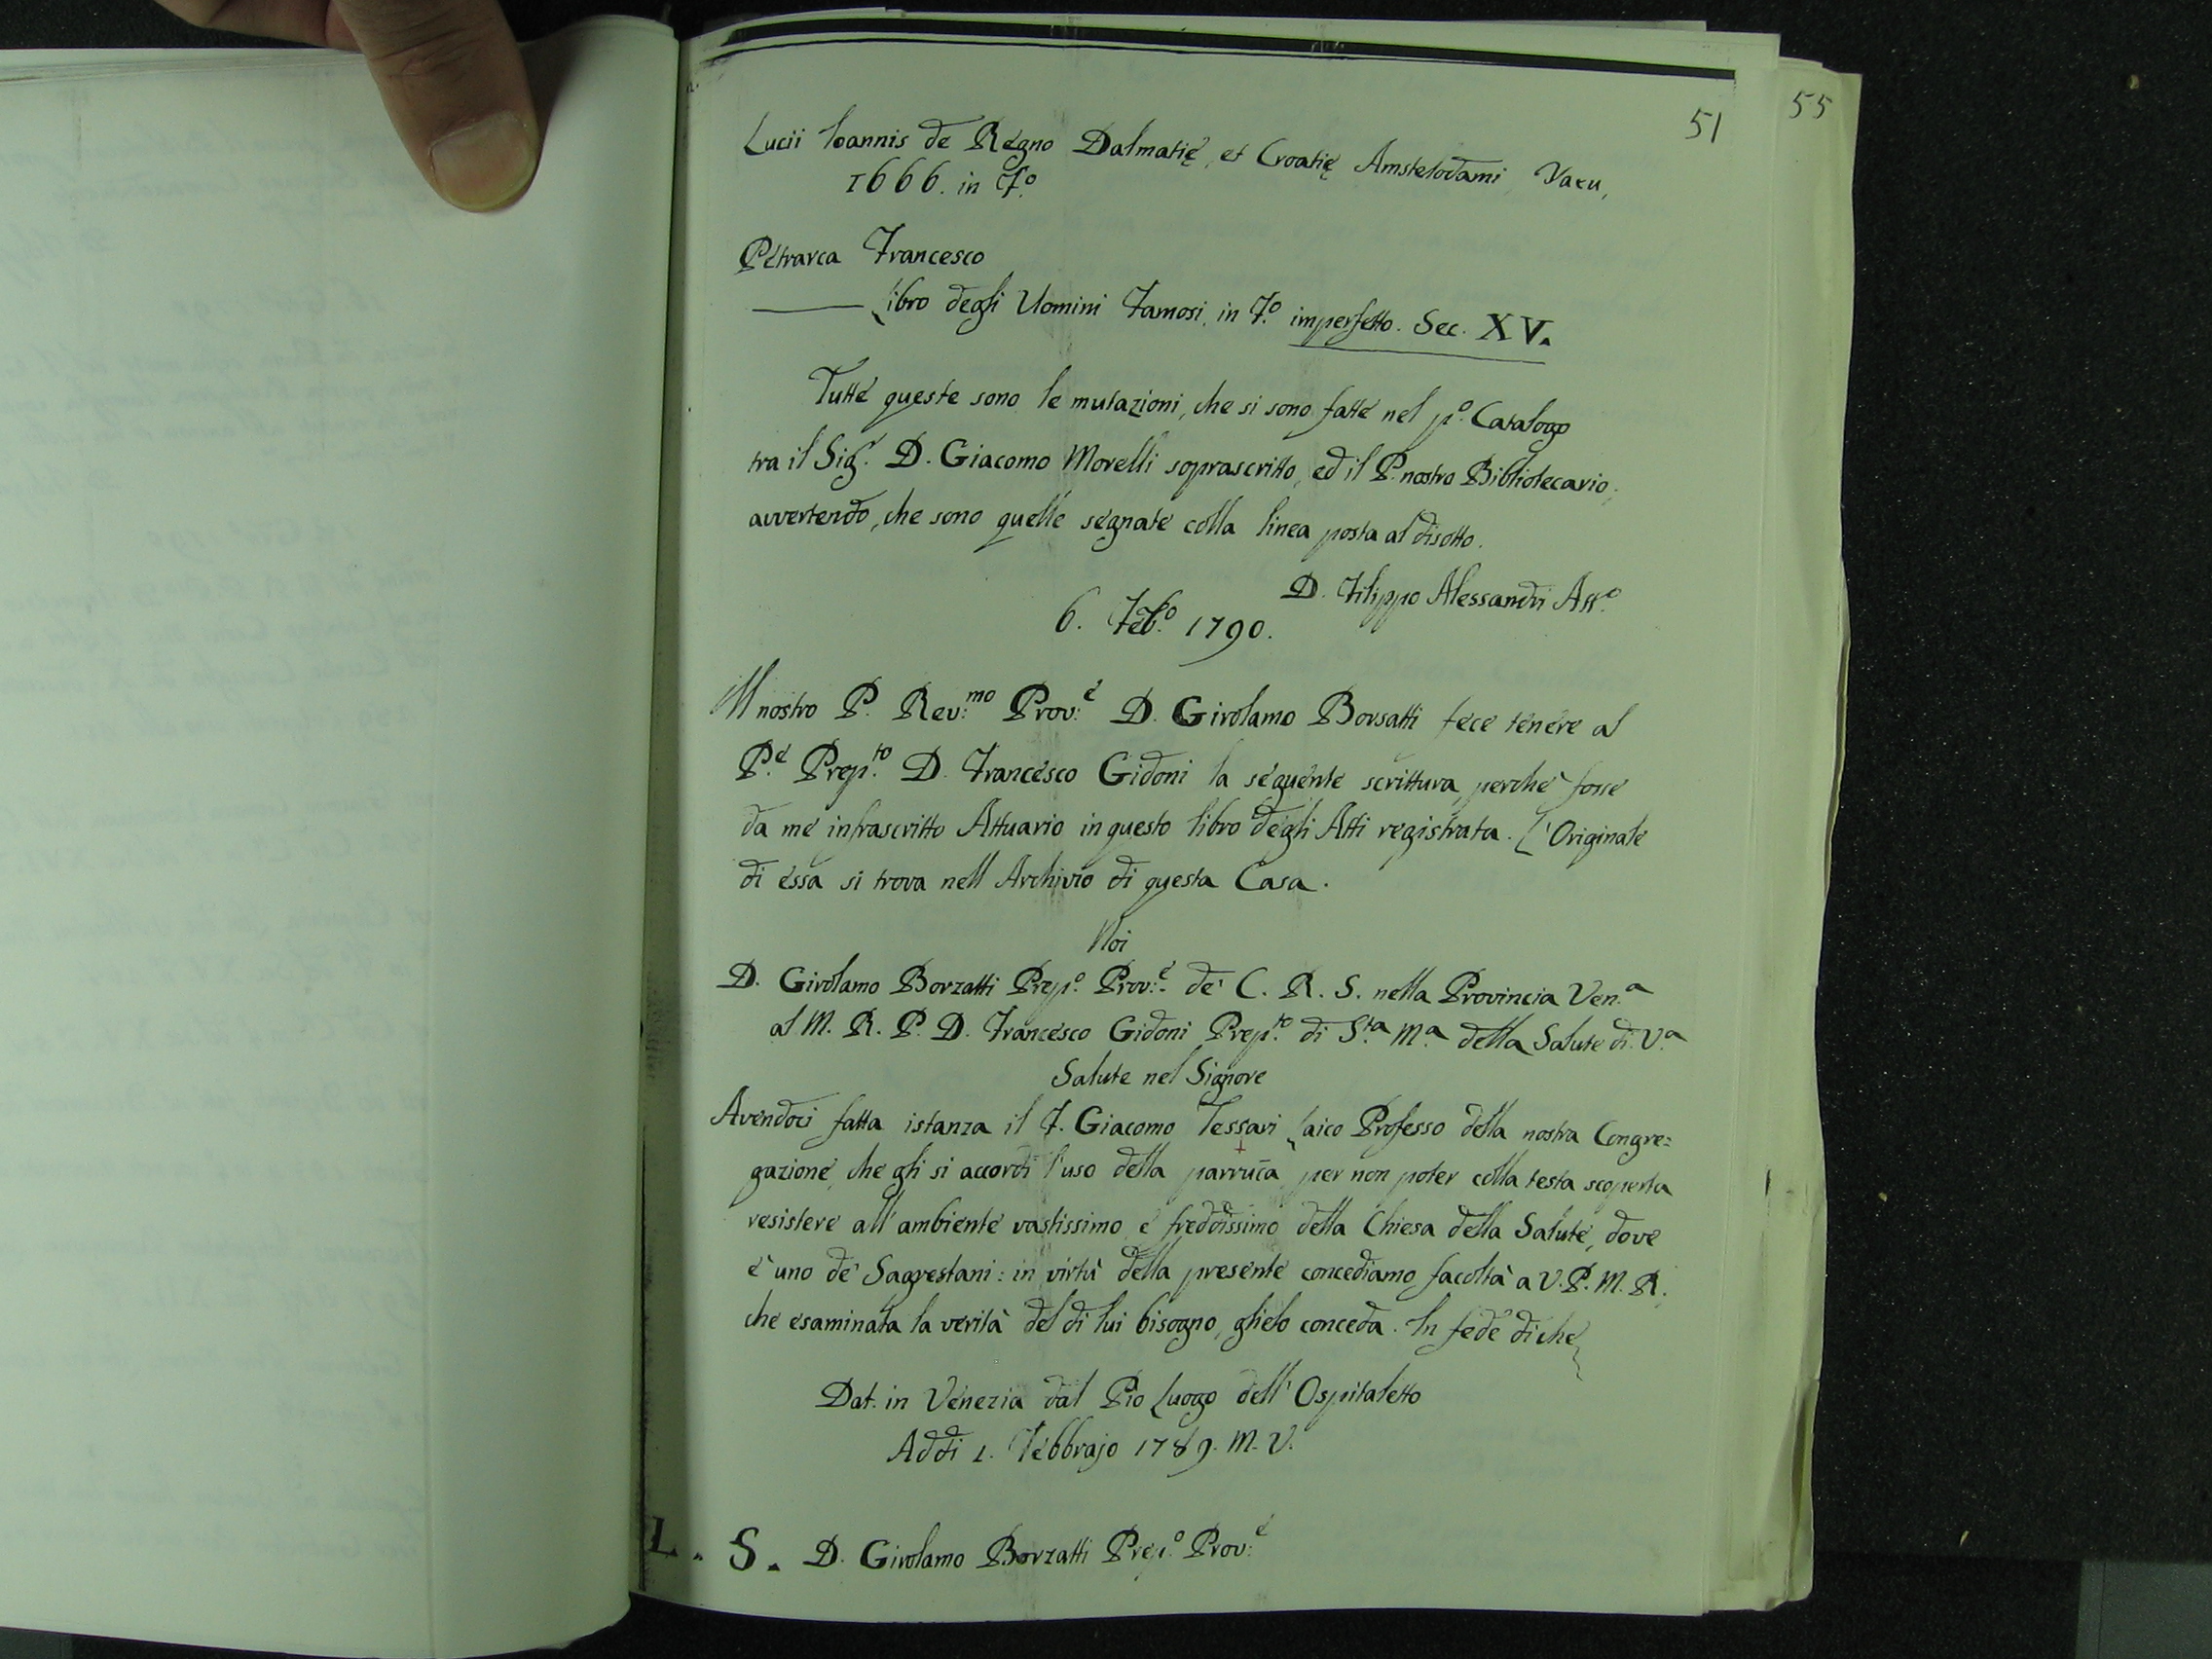 51
55
Lucii Ioannis de Regno Dalmatię, et Croatię Amstelodami
1666. in F.º
Petrarca Francesco
——— Libro degli Uomini Famosi, in F.º imperfetto. Sec. XV.
Tutte queste sono le mutazioni, che si sono fatte nel p.º Catalogo
tra il Sig.r D. Giacomo Morelli soprascritto, ed il P. nostro Bibliotecario,
avvertendo, che sono quelle segnate colla linea posta al disotto.
D. Filippo Alessandri Att.º
6. Feb.º 1790.
Il nostro P. Rev:mo Prov:e D. Girolamo Borsatti fece tenere al
P.e Prep.to D. Francesco Gidoni la seguente scrittura, perchè fosse
da me infrascritto Attuario in questo libro degli Atti registrata. L'Originale
di essa si trova nell Archivio di questa Casa.
Noi
D. Girolamo Borzatti Prep.º Prov:e de' C. R. S. nella Provincia Ven.a
al M. R. P. D. Francesco Gidoni Prep.to di S.ta M.a della Salute di V.a
Salute nel Signore
Avendoci fatta istanza il F. Giacomo Tessari Laico Professo della nostra Congre=
gazione, che gli si accordi l'uso della parruca, per non poter colla testa scoperta
resistere all' ambiente vastissimo, e freddissimo della Chiesa della Salute, dove
è uno de' Sagrestani: in virtù della presente concediamo facoltà a V. P. M. R.,
che esaminata la verità del di lui bisogno, glielo conceda. In fede di che
Dat. in Venezia dal Pio Luogo dell' Ospitaletto
Addi 1. Febbrajo 1789. M. V.
L. S. D. Girolamo Borzatti Prep.º Prov:e